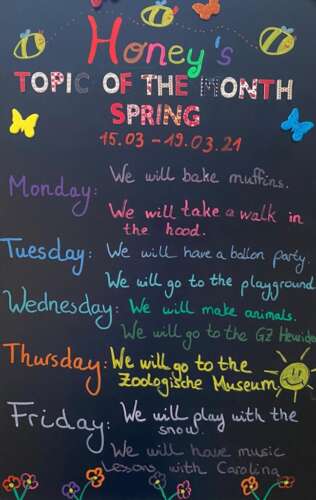 Honey's
TOPIC OF THE MONTH
SPRING
15.03 - 19.03.21
Monday: We will bake muffins.
We will take a walk in
the hood.
Tuesday: We will have a ballon party.
We will go to the playground
Wednesday: We will make animals.
We will go to the GZ
Thursday: We will go to the
Zoologische Museum
Friday: We will play with the
snow.
We will have music
Lessons with Carolina